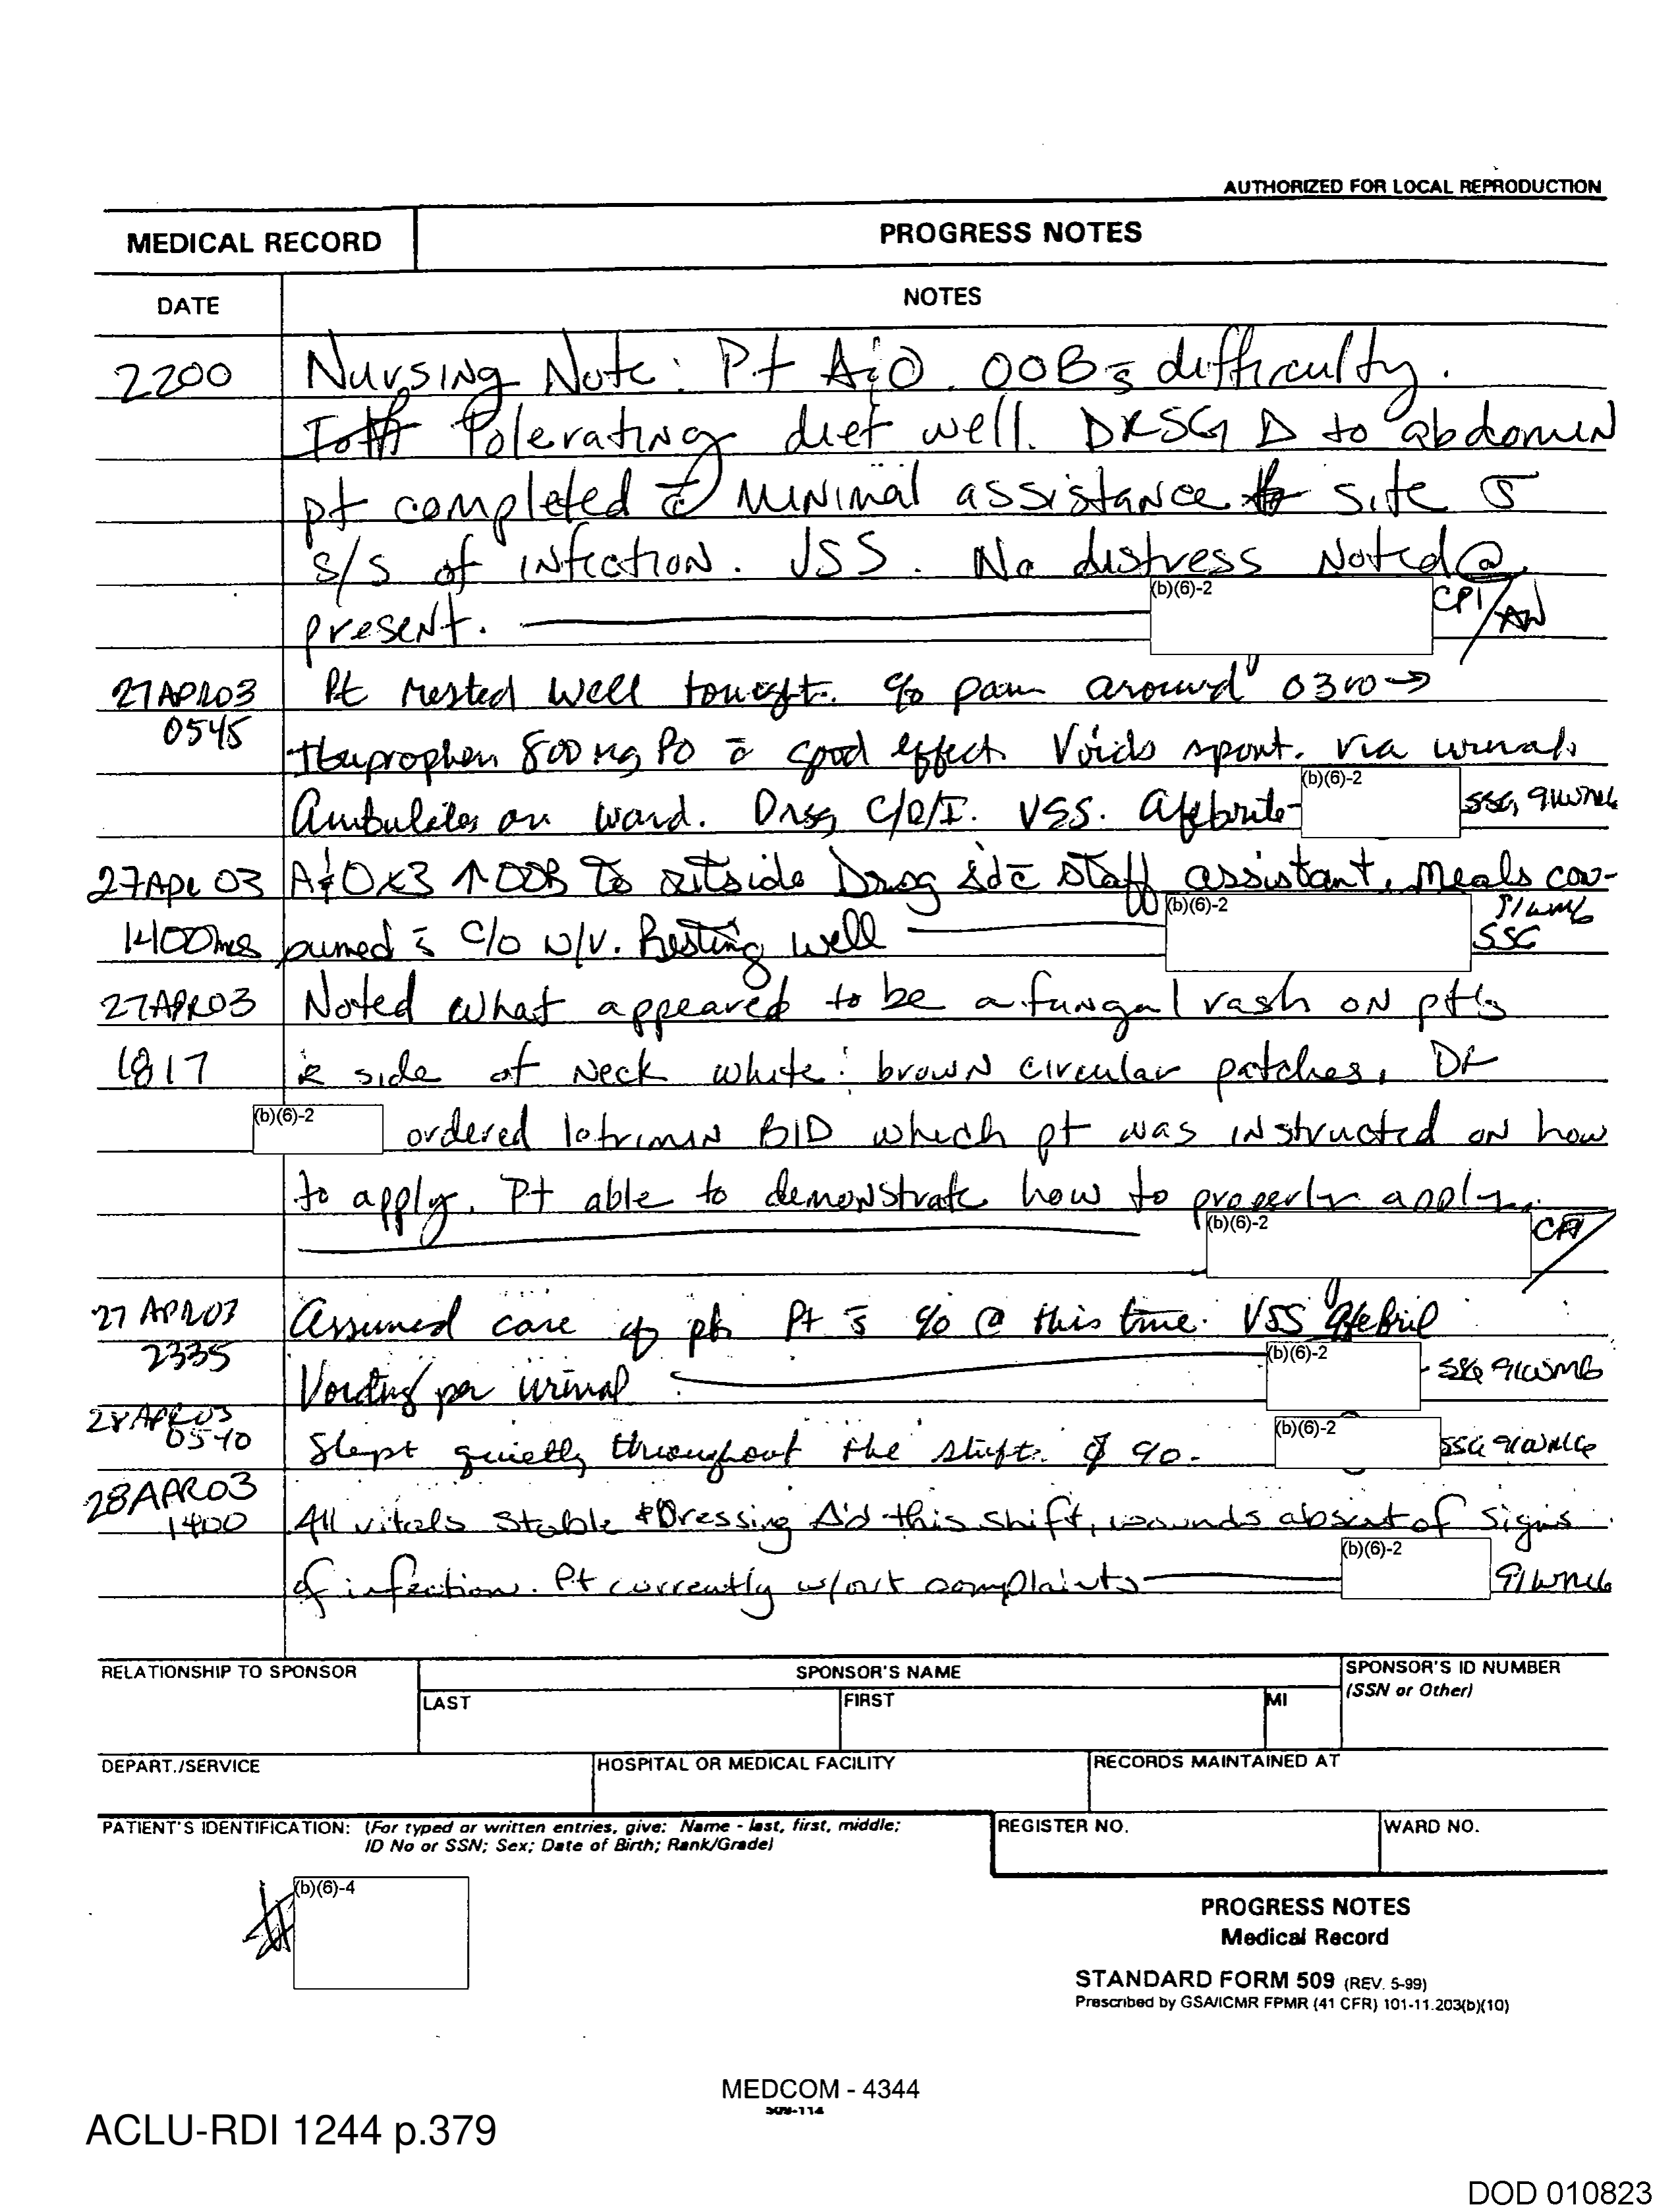 AUTHORIZED FOR LOCAL REPRODUCTION
MEDICAL RECORD
PROGRESS NOTES
DATE
NOTES
2200 Nursing Note: Pt A&O. OOB s̄ difficulty.
Tolerating diet well. DRSG Δ to abdomen
pt completed c̄ minimal assistance site s̄
s/s of infection. VSS. No distress Noted @
present. (b)(6)-2 CPT/AN
27APR03 Pt rested well tonight. c/o pain around 0300→
0545 Ibuprophen 800mg PO c̄ good effect. Voids spont. via urinal.
Ambulates on ward. Drsg C/D/I. VSS. Afebrile (b)(6)-2 SSG, 91WM6
27APR 03 A&Ox3 ↑OOB to outside Drsg c̄ staff assistant, meals con-
1400hrs sumed s̄ c/o N/V. Resting well (b)(6)-2 91WM6 SSG
27APR03 Noted what appeared to be a fungal rash on pt's
1817 R side of neck white : brown circular patches. DR
(b)(6)-2 ordered lotrimin BID which pt was instructed on how
to apply. Pt able to demonstrate how to properly apply.
(b)(6)-2 CPT/
27 APR03 Assumed care of pt. Pt s̄ c/o @ this time. VSS Afebril
2335 Voiding per urinal (b)(6)-2 SSG 91WM6
28APR03
0540 Slept quietly throughout the shift. Ø c/o. (b)(6)-2 SSG 91WM6
28APR03
1400 All vitals stable & Dressing Δ'd this shift, wounds absent of signs
of infection. Pt currently w/out complaints (b)(6)-2 91WM6
RELATIONSHIP TO SPONSOR
SPONSOR'S NAME
SPONSOR'S ID NUMBER
(SSN or Other)
LAST
FIRST
MI
DEPART./SERVICE
HOSPITAL OR MEDICAL FACILITY
RECORDS MAINTAINED AT
PATIENT'S IDENTIFICATION: (For typed or written entries, give: Name - last, first, middle;
ID No or SSN; Sex; Date of Birth; Rank/Grade)
REGISTER NO.
WARD NO.
# (b)(6)-4
PROGRESS NOTES
Medical Record
STANDARD FORM 509 (REV. 5-99)
Prescribed by GSA/ICMR FPMR (41 CFR) 101-11.203(b)(10)
MEDCOM - 4344
509-114
ACLU-RDI 1244 p.379
DOD 010823